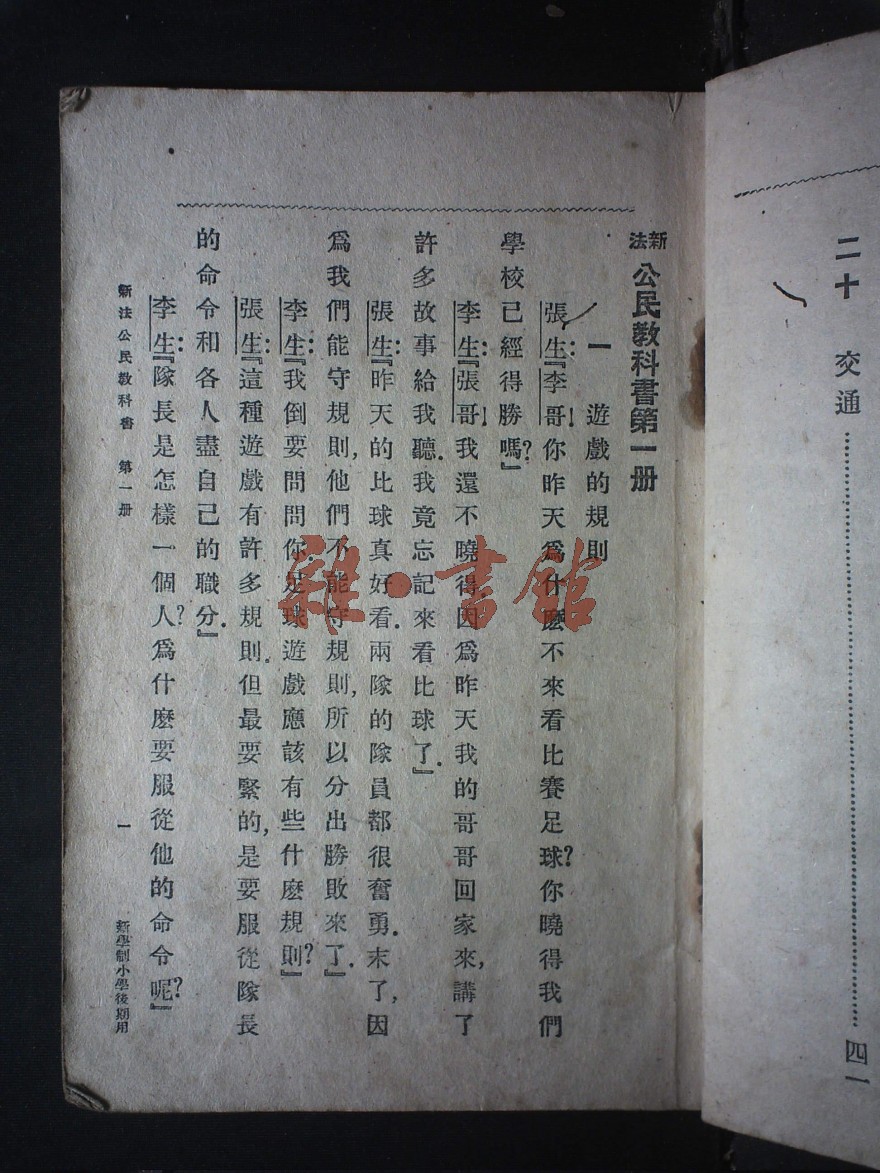 二十　交通……………………四一
新法公民教科書第一册
一　遊戲的規則
張生:『李哥!你昨天爲什麼不來看比賽足球?你曉得我們
學校已經得勝嗎?』
李生:『張哥!我還不曉得.因爲昨天我的哥哥回家來,講了
許多故事給我聽.我竟忘記來看比球了.』
張生:『昨天的比球真好看.兩隊的隊員都很奮勇.末了,因
爲我們能守規則,他們不能守規則,所以分出勝敗來了.』
李生:『我倒要問問你.足球遊戲應該有些什麼規則?』
張生:『這種遊戲有許多規則.但最要緊的,是要服從隊長
的命令和各人盡自己的職分.』
李生:『隊長是怎樣一個人?爲什麼要服從他的命令呢?』
新法公民教科書　第一册　一　新學制小學後期用
雜·書館